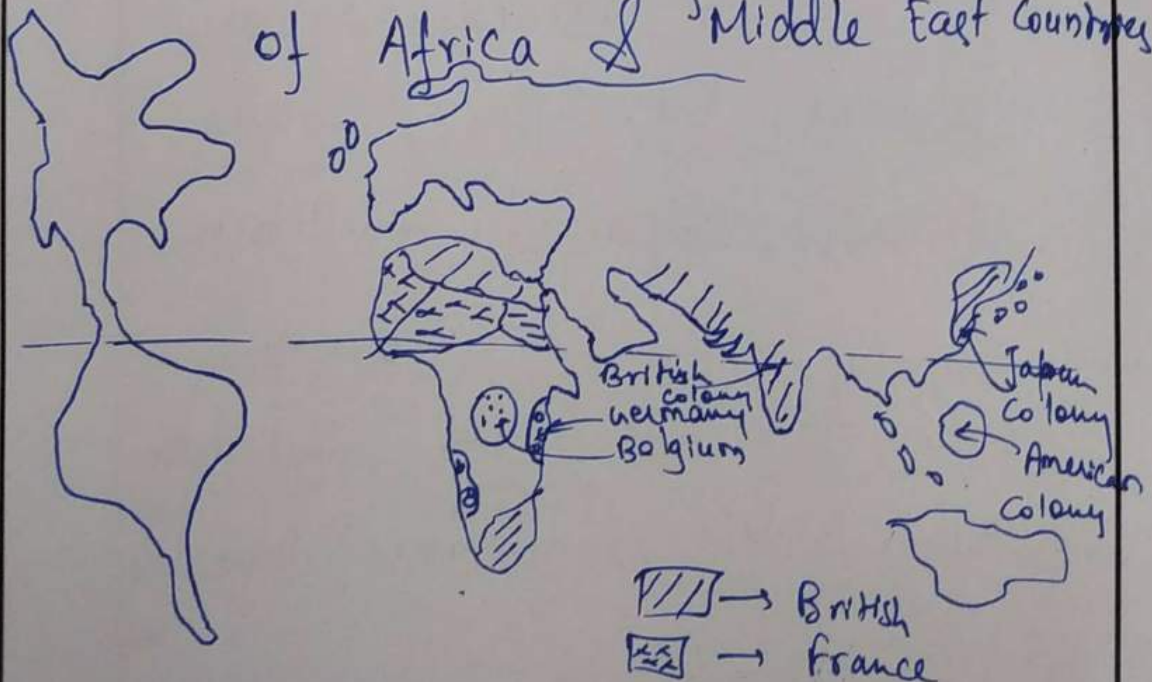 of Africa & Middle East Countries
British
colony
Germany
Belgium
Japan
Colony
American
Colony
British
France